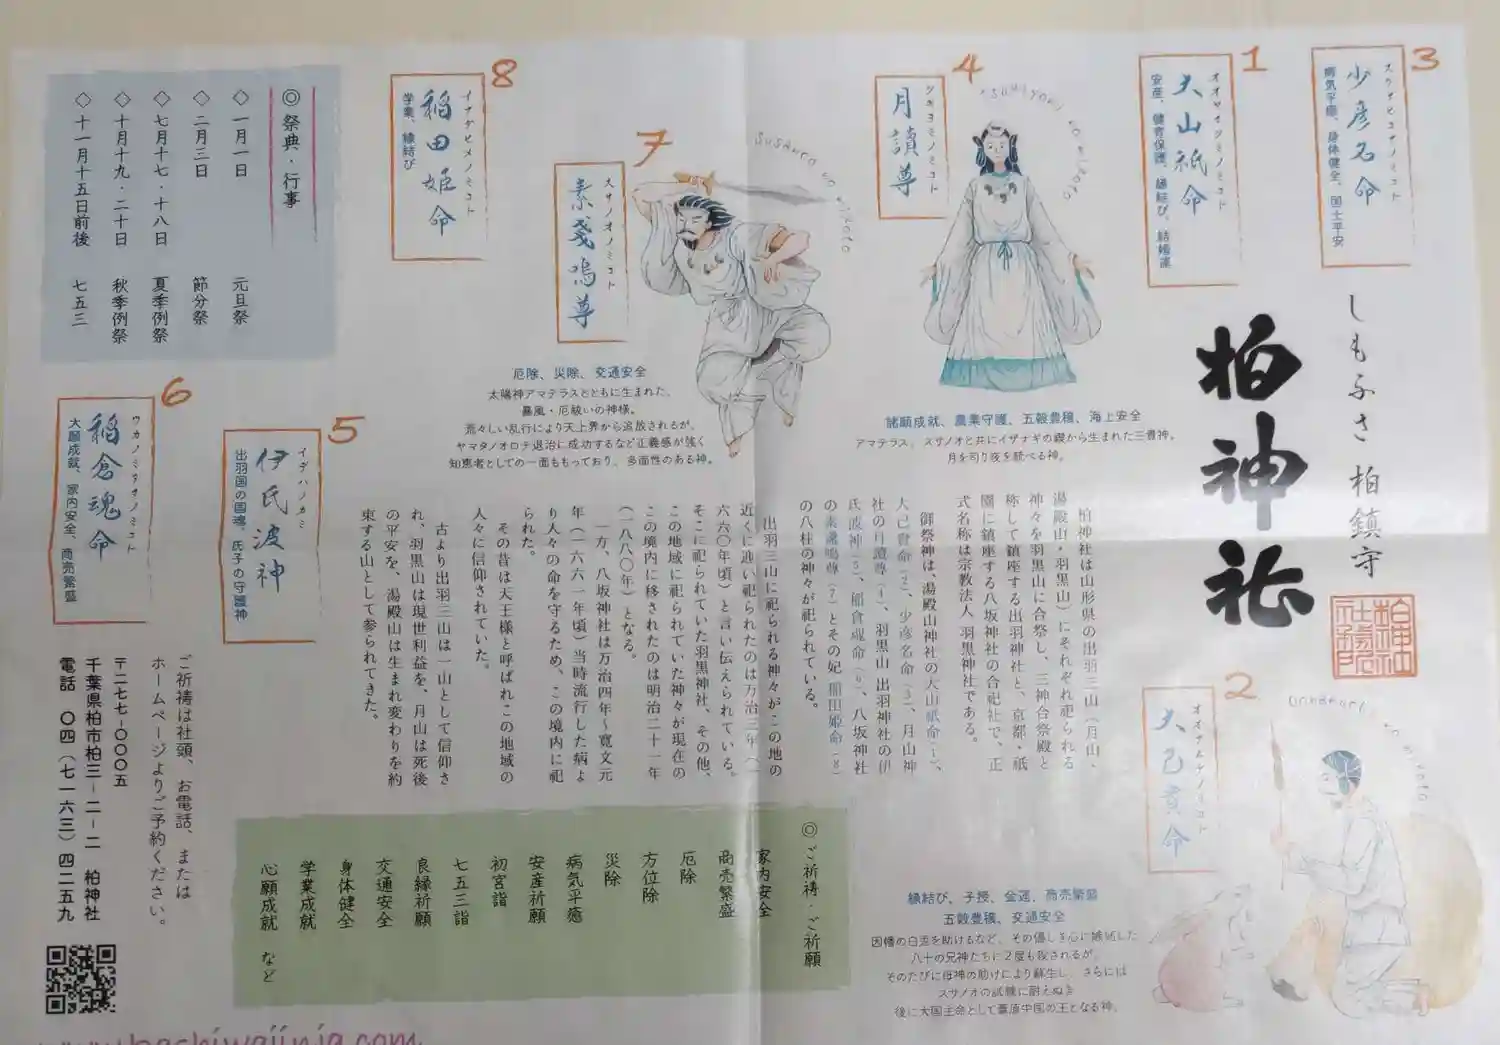 しもふさ柏鎮守
柏神社
3
スクナヒコナノミコト
少彦名命
病気平癒、身体健全、国土平安
1
オオヤマツミノミコト
大山祇命
安産、健育保護、縁結び、結婚運
4
ツキヨミノミコト
月讀尊
諸願成就、農業守護、五穀豊穣、海上安全
アマテラス、スサノオと共にイザナギの禊から生まれた三貴神。
月を司り夜を統べる神。
7
スサノオノミコト
素戔嗚尊
susanoo no mikoto
厄除、災除、交通安全
太陽神アマテラスとともに生まれた、
暴風・厄祓いの神様。
荒々しい乱行により天上界から追放されるが、
ヤマタノオロチ退治に成功するなど正義感が強く
知恵者としての一面ももっており、多面性のある神。
8
イナダヒメノミコト
稲田姫命
学業、縁結び
◎祭典・行事
◇一月一日 元旦祭
◇二月三日 節分祭
◇七月十七・十八日 夏季例祭
◇十月十九・二十日 秋季例祭
◇十一月十五日前後 七五三
2
大己貴命
縁結び、子授、金運、商売繁盛
五穀豊穣、交通安全
因幡の白兎を助けるなど、その優しき心に嫉妬した
八十の兄神たちに2度も殺されるが、
そのたびに母神の助けにより蘇生し、さらには
スサノオの試練に耐えぬき
後に大国主命として葦原中国の王となる神。
柏神社は山形県の出羽三山（月山・
湯殿山・羽黒山）にそれぞれ祀られる
神々を羽黒山に合祭し、三神合祭殿と
称して鎮座する出羽神社と、京都・祇
園に鎮座する八坂神社の合祀社で、正
式名称は宗教法人 羽黒神社である。
御祭神は、湯殿山神社の大山祇命（1）、
大己貴命（2）、少彦名命（3）、月山神
社の月讀尊（4）、羽黒山 出羽神社の伊
氏波神（5）、稲倉魂命（6）、八坂神社
の素戔嗚尊（7）とその妃 稲田姫命（8）
の八柱の神々が祀られている。
出羽三山に祀られる神々がこの地の
近くに迎い祀られたのは万治三年（一
六六〇年頃）と言い伝えられている。
そこに祀られていた羽黒神社、その他、
この地域に祀られていた神々が現在の
この境内に移されたのは明治二十一年
（一八八〇年）となる。
一方、八坂神社は万治四年～寛文元
年（一六六一年頃）当時流行した病よ
り人々の命を守るため、この境内に祀
られた。
その昔は天王様と呼ばれこの地域の
人々に信仰されていた。
古より出羽三山は一山として信仰さ
れ、羽黒山は現世利益を、月山は死後
の平安を、湯殿山は生まれ変わりを約
束する山として参られてきた。
5
イデハノカミ
伊氏波神
出羽国の国魂、氏子の守護神
6
ウカノミタマノミコト
稲倉魂命
大願成就、家内安全、商売繁盛
◎ご祈祷・ご祈願
家内安全
商売繁盛
厄除
方位除
災除
病気平癒
安産祈願
初宮詣
七五三詣
良縁祈願
交通安全
身体健全
学業成就
心願成就 など
ご祈祷は社頭、お電話、または
ホームページよりご予約ください。
〒二七七-〇〇〇五
千葉県柏市柏三-二-二 柏神社
電話 〇四（七一六三）四二五九